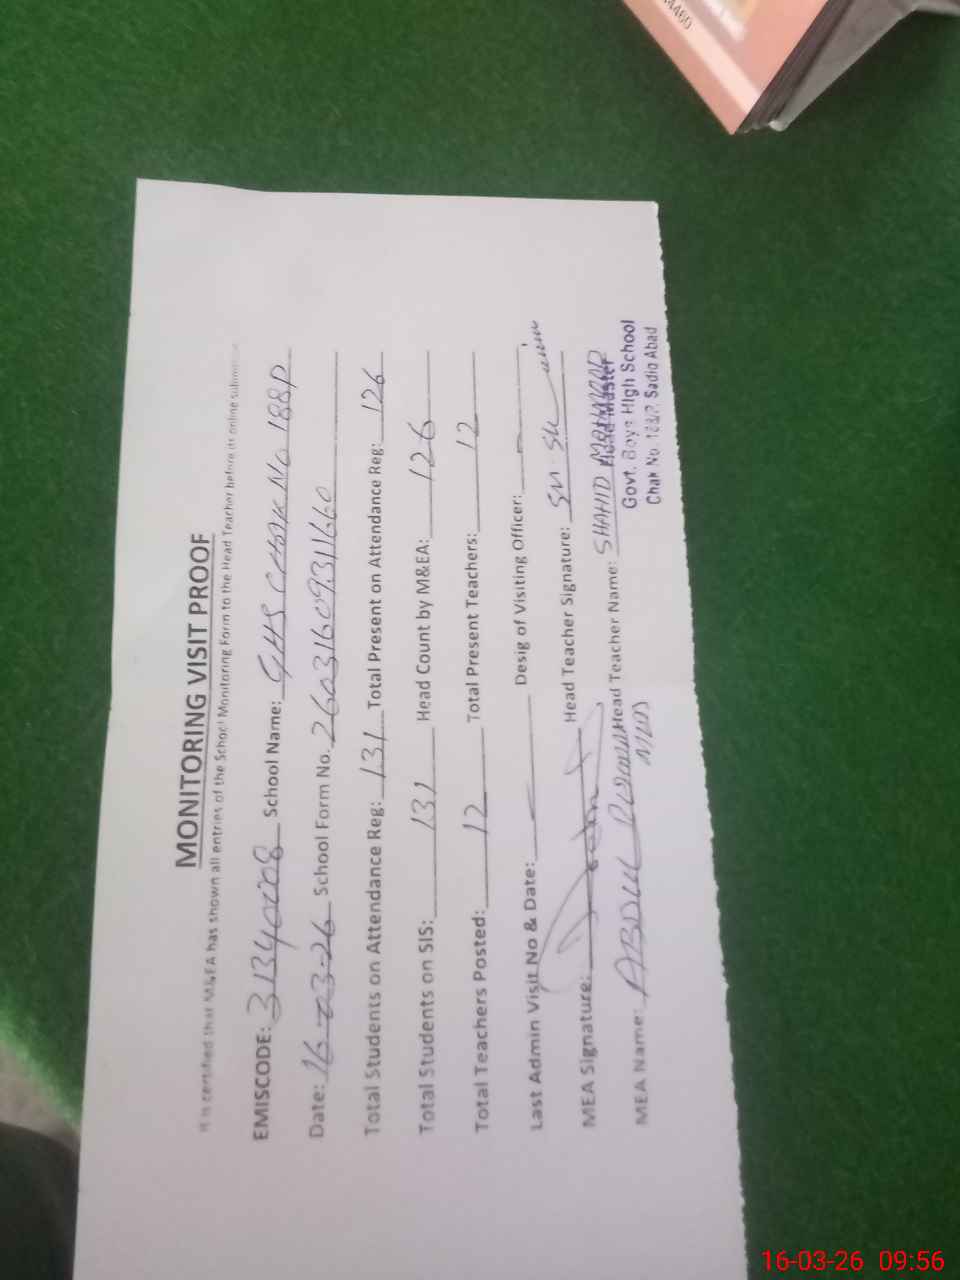 MONITORING VISIT PROOF
It is certified that M&EA has shown all entries of the School Monitoring Form to the Head Teacher before its online
EMISCODE: 31340008 School Name: GHS CHAK No 188P
Date: 16-03-26 School Form No. 26031609311660
Total Students on Attendance Reg: 131 Total Present on Attendance Reg: 126
Total Students on SIS: 131 Head Count by M&EA: 126
Total Teachers Posted: 12 Total Present Teachers: 12
Last Admin Visit No & Date: Desig of Visiting Officer:
MEA Signature: Head Teacher Signature:
MEA Name: ABDUL Head Teacher Name: SHAHID MAHMOOD
Head Master
Govt. Boys High School
Chak No. 188/P Sadiq Abad
16-03-26 09:56